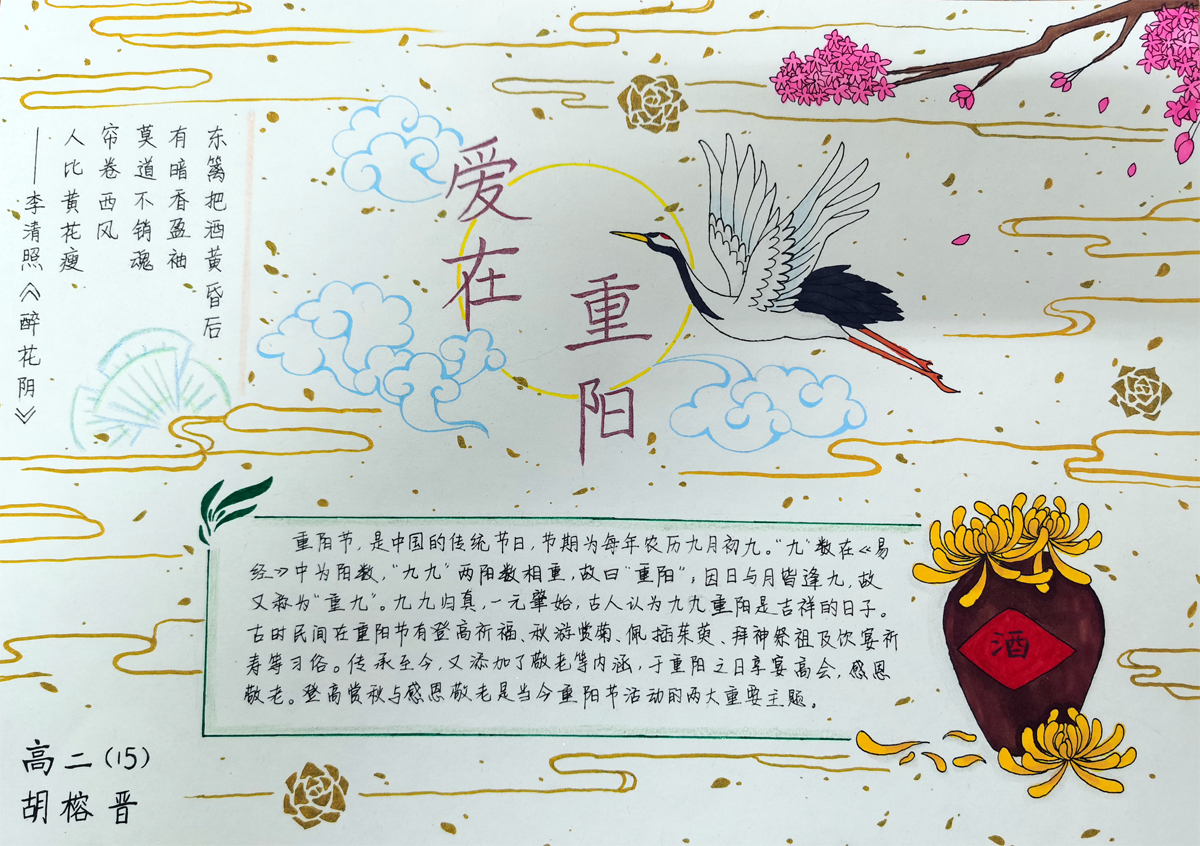 爱在
重阳
东篱把酒黄昏后
有暗香盈袖
莫道不销魂
帘卷西风
人比黄花瘦
——李清照《醉花阴》
重阳节，是中国的传统节日，节期为每年农历九月初九。“九”数在《易
经》中为阳数，“九九”两阳数相重，故曰“重阳”；因日与月皆逢九，故
又称为“重九”。九九归真，一元肇始，古人认为九九重阳是吉祥的日子。
古时民间在重阳节有登高祈福、秋游赏菊、佩插茱萸、拜神祭祖及饮宴祈
寿等习俗。传承至今，又添加了敬老等内涵，于重阳之日享宴高会，感恩
敬老。登高赏秋与感恩敬老是当今重阳节活动的两大重要主题。
酒
高二（15）
胡榕晋